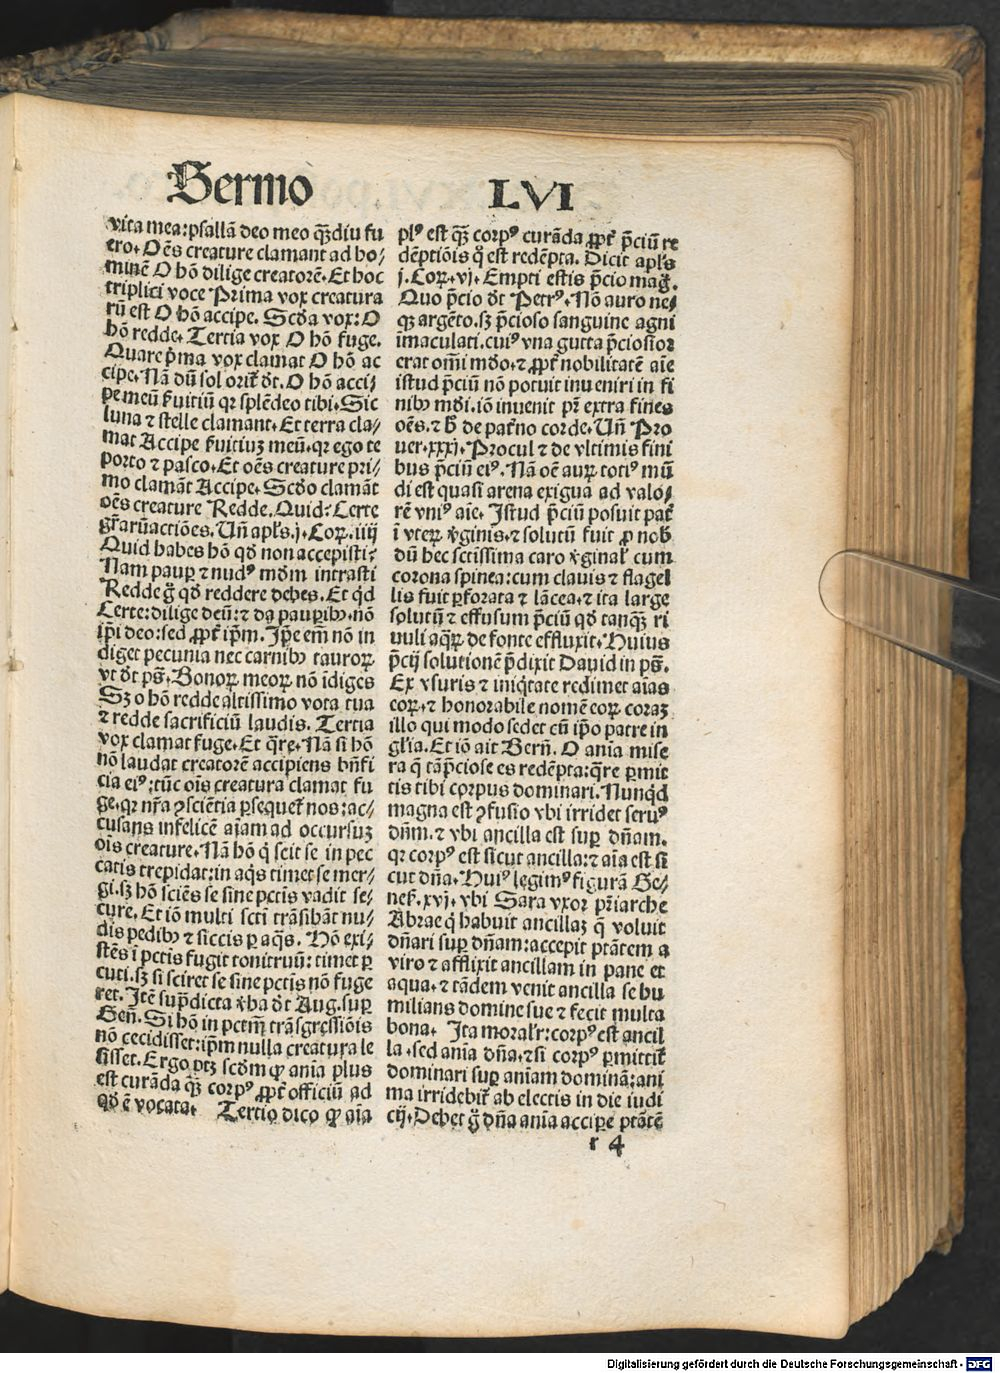 Sermo LVI
vita mea: psallā deo meo q̄ꝫdiu fu
ero. Oēs creature clamant ad ho/
minē O hō dilige creatorē. Et hoc
triplici voce Prima vox creatura
rū est O hō accipe. Scḋa vox: O
hō redde. Tertia vox O hō fuge.
Quare p̄ma vox clamat O hō ac
cipe. Nā dū sol orit᷑ dt. O hō acci/
pe meū ẜuitiū qꝛ splēdeo tibi. Sic
luna ⁊ stelle clamant. Et terra cla/
mat Accipe ẜuitiuꝫ meū. qꝛ ego te
porto ⁊ pasco. Et oēs creature pri/
mo clamāt Accipe. Scḋo clamāt
oēs creature Redde. Quid? Certe
gr̄aꝝ actiōes. Vñ apl̄s. j. Coꝝ. iiij
Quid habes hō qḋ non accepisti?
Nam pauꝑ ⁊ nudꝰ mūdm intrasti
Redde g̊ qḋ reddere debes. Et qͥd
Certe: dilige deū: ⁊ da pauꝑibꝰ. nō
ip̄i deo: sed ꝓpt᷑ ip̄m. Ip̄e em̄ nō in
diget pecunia nec carnibꝰ tauroꝝ
vt dt ps̄. Bonoꝝ meoꝝ nō īdiges
Sꝫ o hō redde altissimo vota tua
⁊ redde sacrificiū laudis. Tertia
vox clamat fuge. Et q̄re. Nā si hō
nō laudat creatorē accipiens bn̄fi
cia eiꝰ: tūc oīs creatura clamat fu
ge. qꝛ nr̄a ꝯsciētia ꝑsequet᷑ nos: ac/
cusans infelicē aīam ad occursuꝫ
oīs creature. Nā hō q̇ scit se in pec
catis trepidat: in aq̄s timet se mer/
gi. sꝫ hō sciēs se sine pctīs vadit se/
cure. Et iō multi sctī trāsibāt nu/
dis pedibꝰ ⁊ siccis ꝑ aq̄s. Hō exi/
stēs ī pctīs fugit tonitruū: timet ꝑ
cuti. sꝫ si sciret se sine pctīs nō fuge
ret. Itē sup̄dicta v̄ba dt Aug. suꝑ
Gen̄. Si hō in pctm̄ trāsgressiōis
nō cecidisset: ip̄m nulla creatura le
sisset. Ergo ptꝫ scḋm ꝙ anīa plus
est curāda q̄ꝫ corpꝰ ꝓpt᷑ officiū ad
qḋ ē vocata. Tertio dico ꝙ aīa
plꝰ est q̄ꝫ corpꝰ curāda ꝓpt᷑ p̄ciū re
dēptiōis q̊ est redēpta. Dicit apl̄s
j. Coꝝ. vj. Empti estis p̄cio mag̊.
Quo p̄cio dt Petrꝰ. Nō auro ne/
qꝫ argēto. sꝫ p̄cioso sanguine agni
imaculati. cuiꝰ vna gutta p̄ciosior
erat om̄i mūdo. ⁊ ꝓpt᷑ nobilitatē aīe
istud p̄ciū nō potuit inueniri in fi
nibꝰ mūdi. iō inuenit pr̄ extra fines
oēs. ⁊ h̄ de pat᷑no corde. Vñ Pro
uer. xxxj. Procul ⁊ de vltimis fini
bus p̄ciū eiꝰ. Nā oē auꝝ totiꝰ mū
di est quasi arena exigua ad valo/
rē vniꝰ aīe. Istud p̄ciū posuit pat᷑
ī vteꝝ v̄ginis. ⁊ solutū fuit ꝓ nob̄
dū hec sctīssima caro v̄ginal᷑ cum
corona spinea: cum clauis ⁊ flagel
lis fuit ꝑforata ⁊ lācea. ⁊ ita large
solutū ⁊ effusum p̄ciū qḋ tanqꝫ ri
uuli aq̄ꝝ de fonte effluxit. Huius
p̄cij solutionē p̄dixit Dauid in ps̄.
Ex vsuris ⁊ iniq̇tate redimet aīas
eoꝝ. ⁊ honorabile nomē eoꝝ coraꝫ
illo qui modo sedet cū ip̄o patre in
gl̄ia. Et iō ait Bern̄. O anīa mise
ra q̄ tā p̄ciose es redēpta: q̄re ꝑmit
tis tibi corpus dominari. Nunqͥd
magna est ꝯfusio vbi irridet seruꝰ
dn̄m. ⁊ vbi ancilla est suꝑ dn̄am.
qꝛ corpꝰ est sicut ancilla: ⁊ aīa est si
cut dn̄a. Huiꝰ legimꝰ figurā Ge/
nes̄. xvj. vbi Sara vxor pr̄iarche
Abrae q̇ habuit ancillaꝫ q̄ voluit
dn̄ari suꝑ dn̄am: accepit ptātem a
viro ⁊ afflixit ancillam in pane et
aqua. ⁊ tādem venit ancilla se hu
milians domine sue ⁊ fecit multa
bona. Ita moral᷑r: corpꝰ est ancil
la. sed anīa dn̄a. ⁊ si corpꝰ ꝑmittit᷑
dominari suꝑ aniam dominā: ani
ma irridebit᷑ ab electis in die iudi
cij. Debet g̊ dn̄a anīa accipere ptātē
r 4
Digitalisierung gefördert durch die Deutsche Forschungsgemeinschaft - DFG